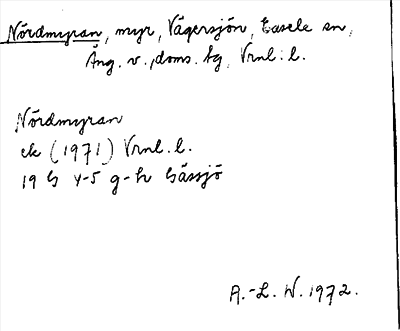 Nördmyran, myr, Vägersjön, Easele sn,
Ång. v., doms. tg, Vrnl. l.
Nördmyran
ek (1971) Vrnl. l.
19 G 4-5 g-h Gässjö
A.-L. W. 1972.